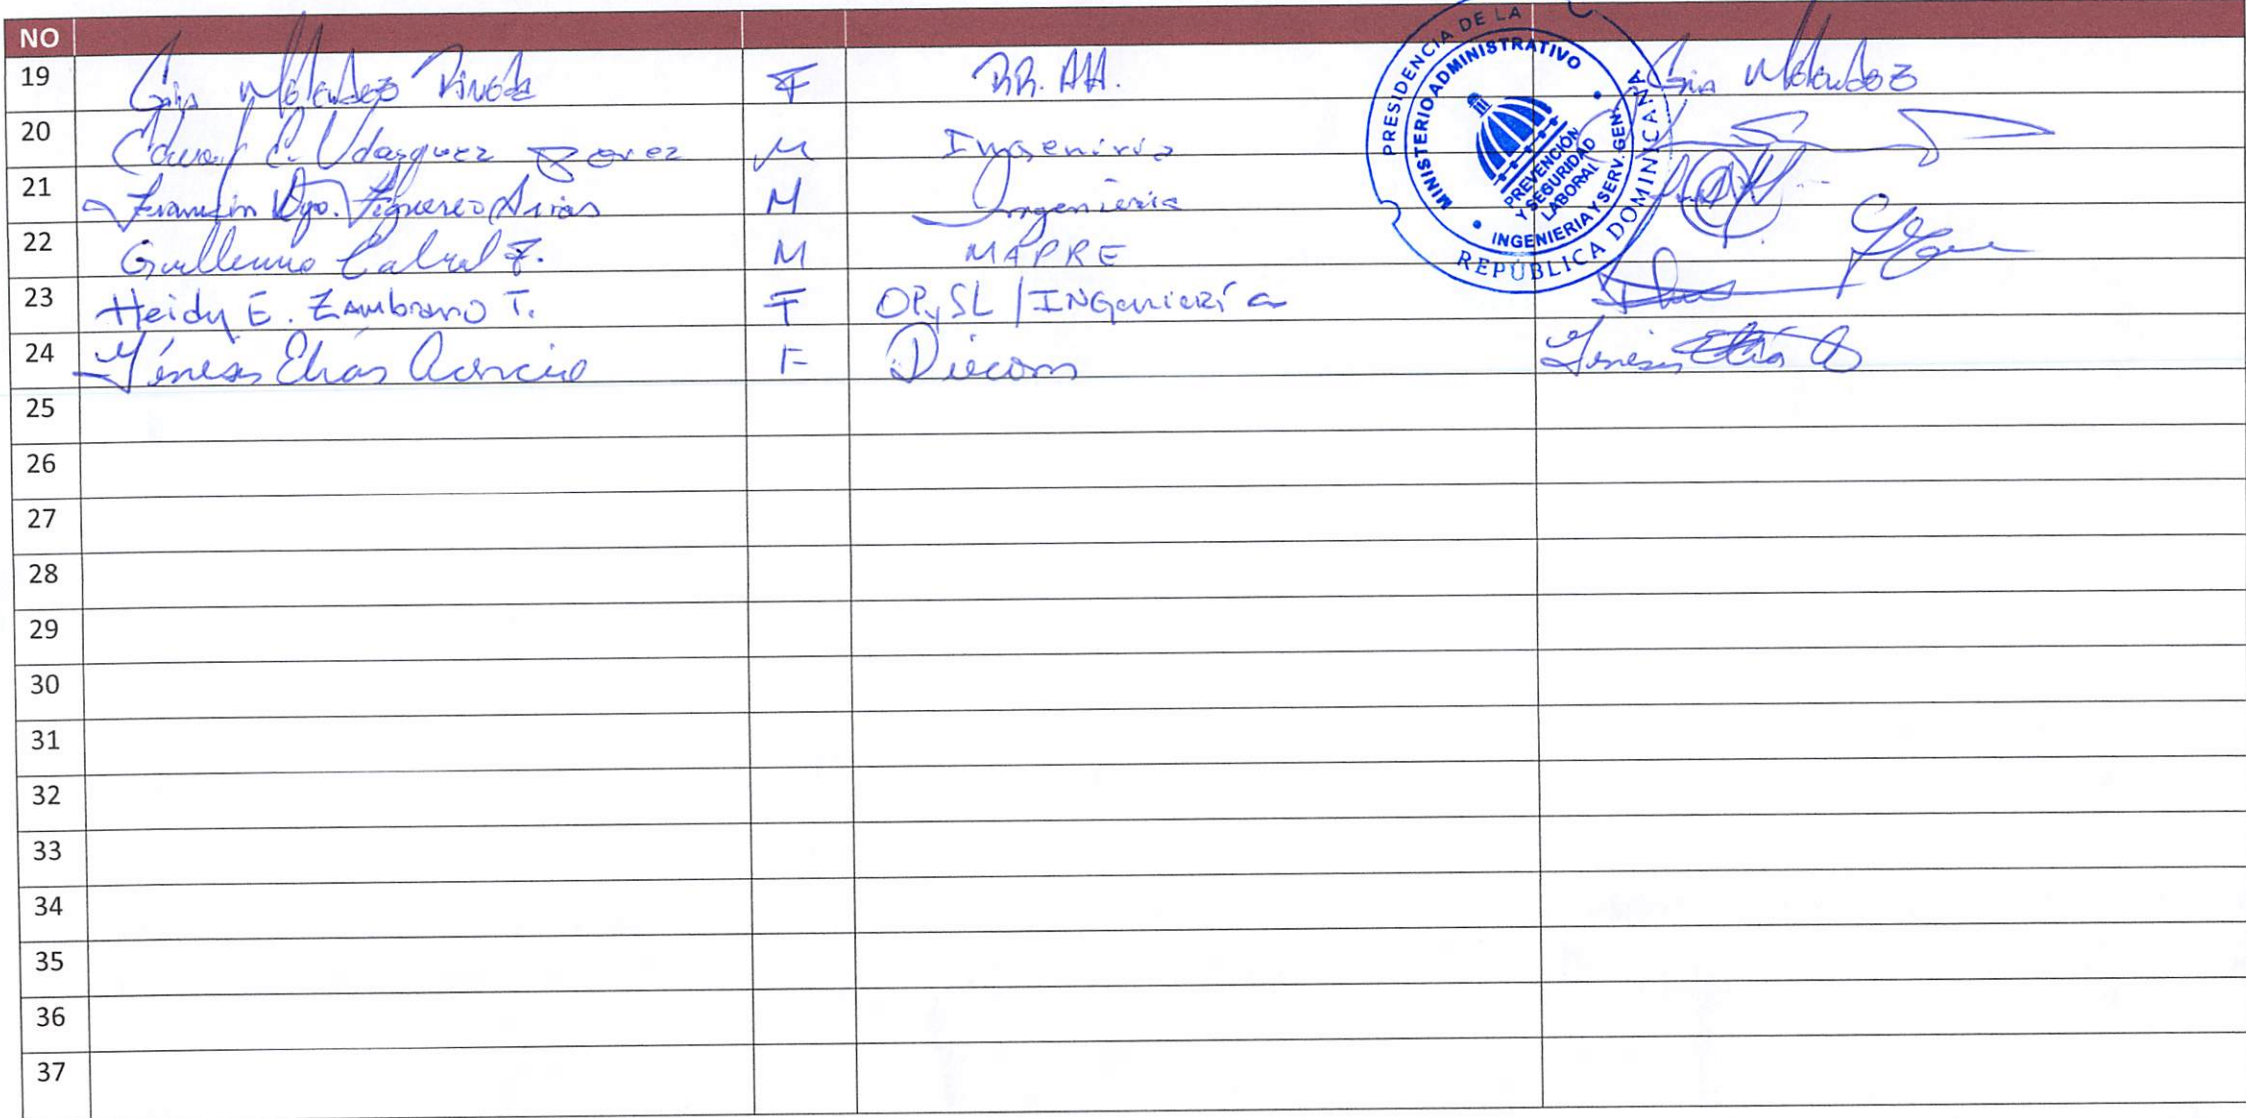 NO
19 Gin Melendez Pineda F RR. HH. Gin Melendez
20 Edward C. Vdazquez M Ingeniria
21 Franklin Dgo. Figuereo Arias M Ingenieria
22 Guillermo Cabral F. M MAPRE
23 Heidy E. Zambrano T. F OPySL/INGenierí a
24 Génesis Elías Asencio F Diecom Génesis Elías A
25
26
27
28
29
30
31
32
33
34
35
36
37
PRESIDENCIA DE LA
REPÚBLICA DOMINICANA
MINISTERIO ADMINISTRATIVO
PREVENCIÓN
Y SEGURIDAD
LABORAL
INGENIERIA Y SERV. GEN.